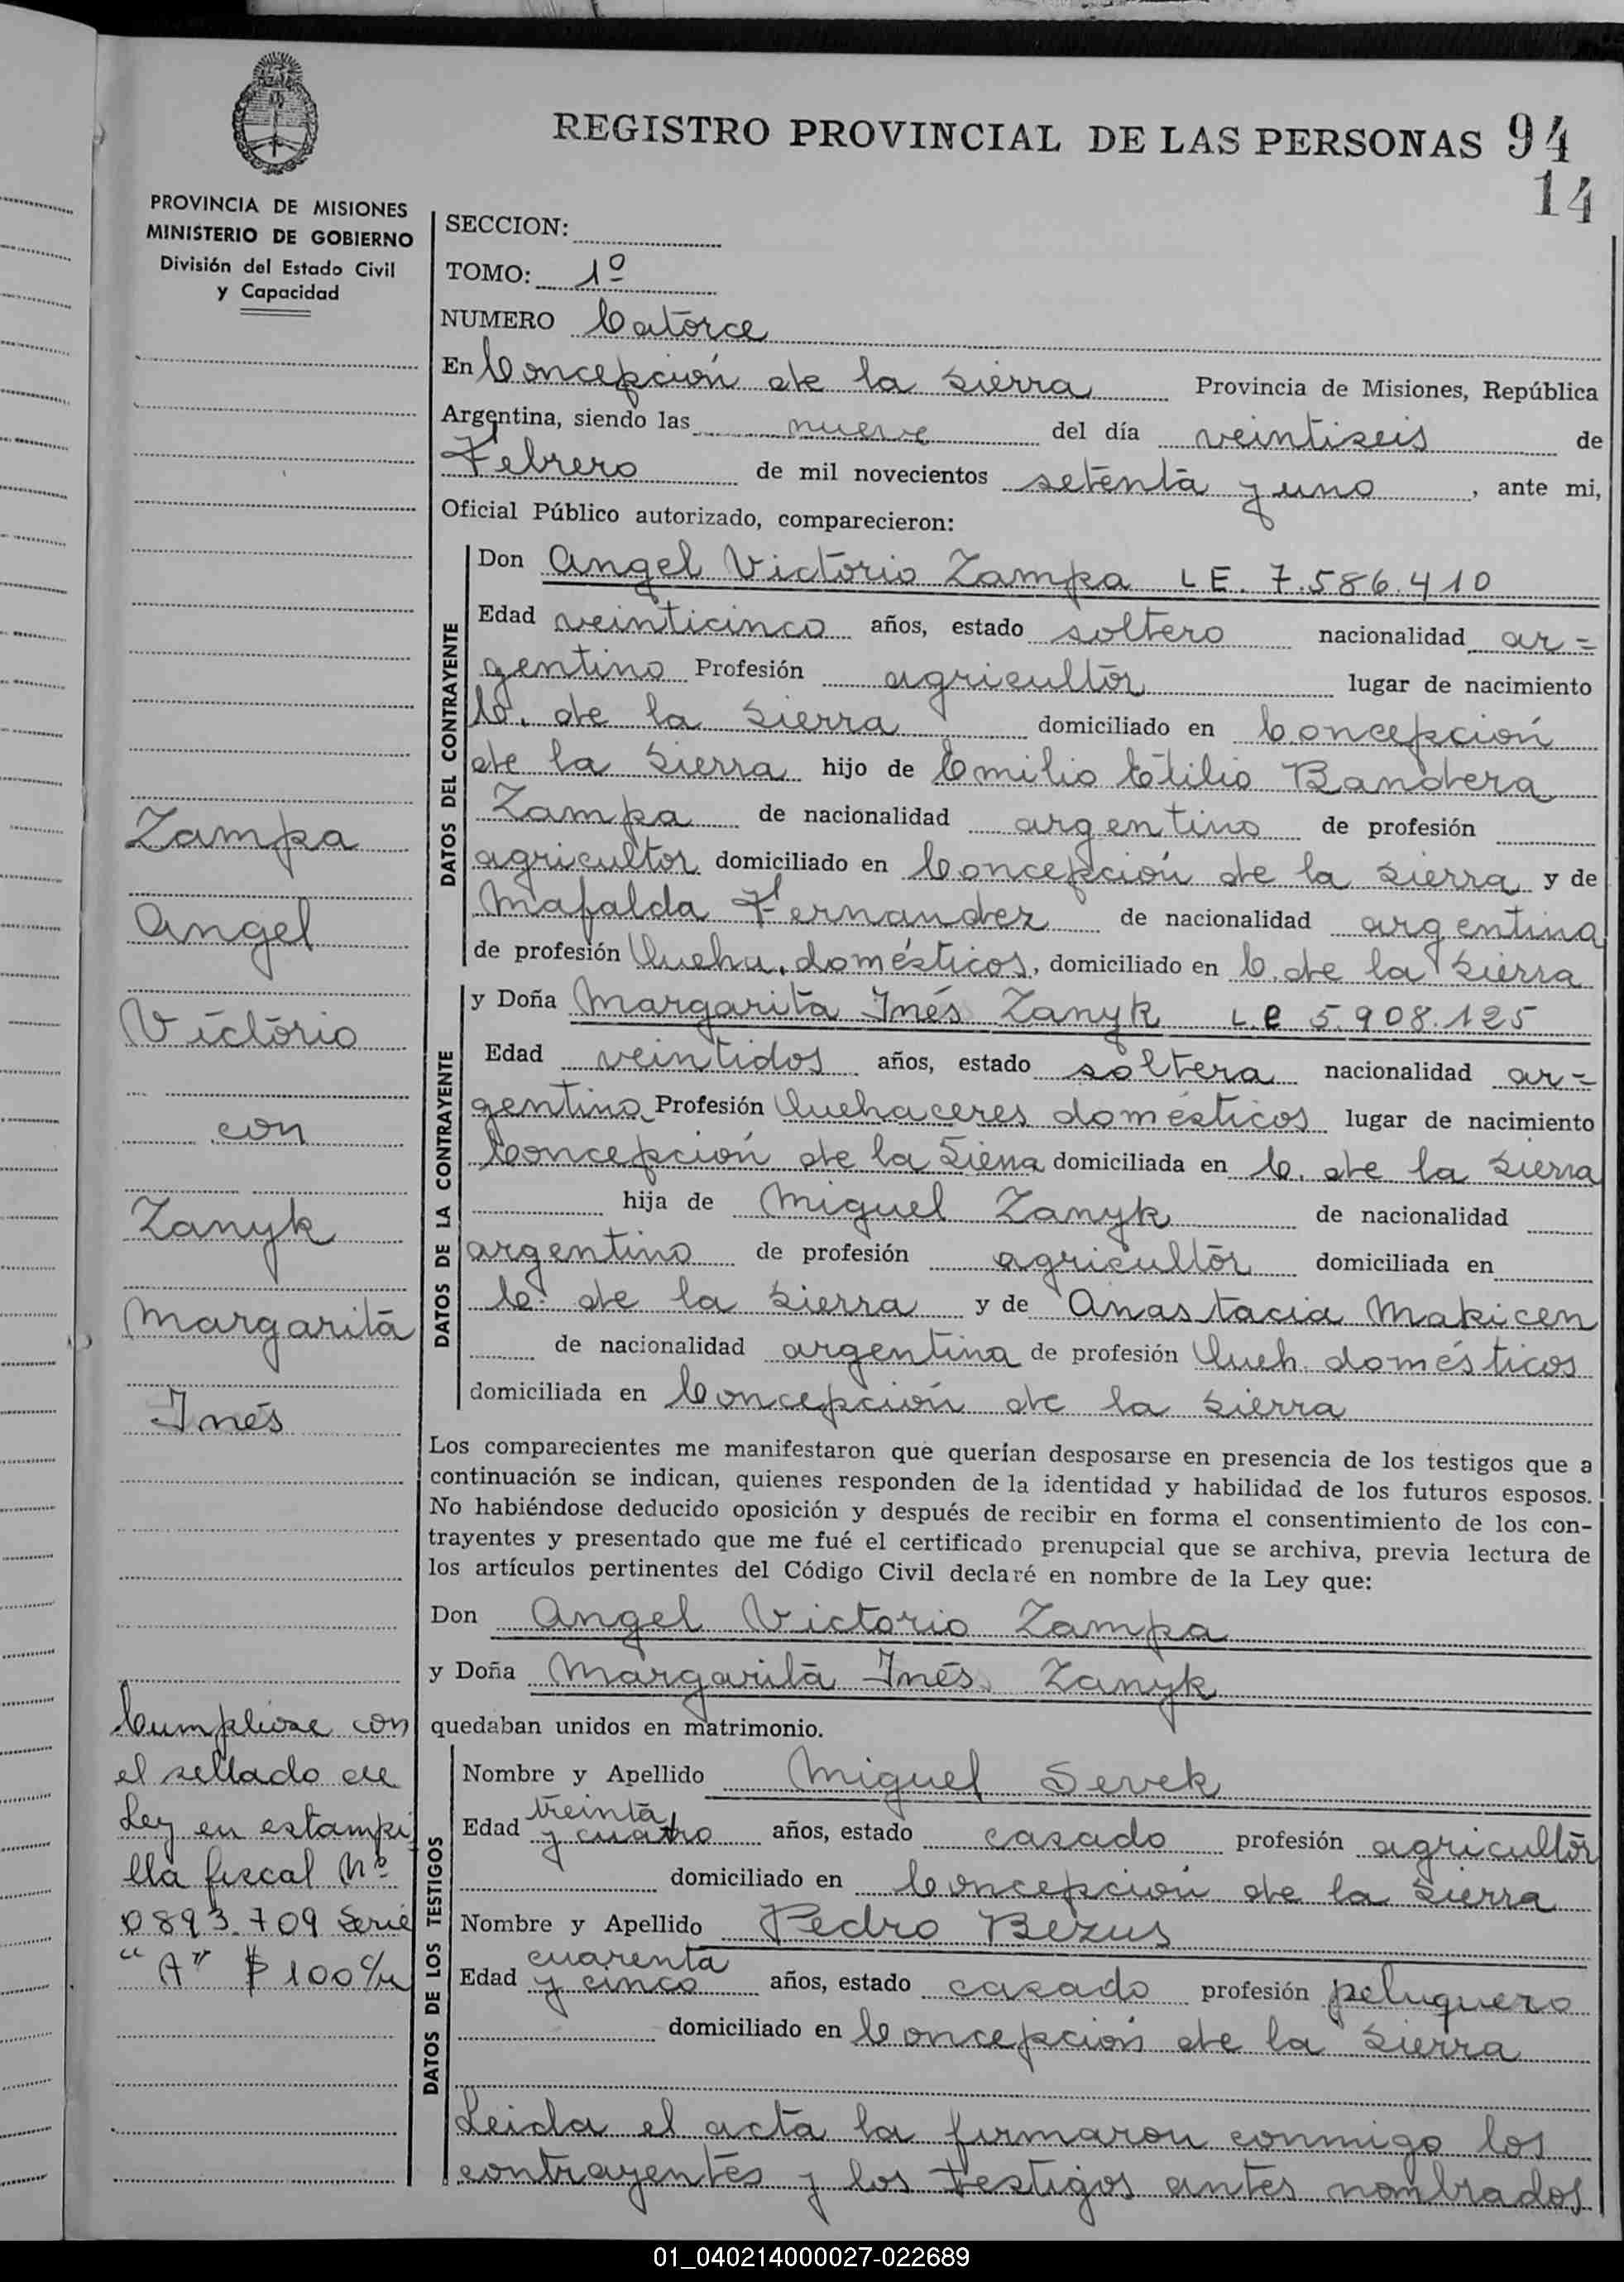 REGISTRO PROVINCIAL DE LAS PERSONAS 94
14
PROVINCIA DE MISIONES
MINISTERIO DE GOBIERNO
División del Estado Civil
y Capacidad
SECCION:
TOMO: 1º
NUMERO Catorce
En Concepción de la Sierra Provincia de Misiones, República
Argentina, siendo las nueve del día veintiseis de
Febrero de mil novecientos setenta y uno, ante mi,
Oficial Público autorizado, comparecieron:
DATOS DEL CONTRAYENTE
Don Angel Victorio Zampa L E. 7.586.410
Edad veinticinco años, estado soltero nacionalidad ar=
gentino Profesión agricultor lugar de nacimiento
C. de la Sierra domiciliado en Concepción
de la Sierra hijo de Emilio Etilio Bandera
Zampa de nacionalidad argentino de profesión
agricultor domiciliado en Concepción de la Sierra y de
Mafalda Fernandez de nacionalidad argentina
de profesión Queha. domésticos, domiciliado en C. de la Sierra
DATOS DE LA CONTRAYENTE
y Doña Margarita Inés Zanyk L.C 5.908.125
Edad veintidos años, estado soltera nacionalidad ar=
gentina Profesión Quehaceres domésticos lugar de nacimiento
Concepción de la Sierra domiciliada en C. de la Sierra
hija de Miguel Zanyk de nacionalidad
argentino de profesión agricultor domiciliada en
C. de la Sierra y de Anastacia Makicen
de nacionalidad argentina de profesión Queh. domésticos
domiciliada en Concepción de la Sierra
Los comparecientes me manifestaron que querían desposarse en presencia de los testigos que a
continuación se indican, quienes responden de la identidad y habilidad de los futuros esposos.
No habiéndose deducido oposición y después de recibir en forma el consentimiento de los con-
trayentes y presentado que me fué el certificado prenupcial que se archiva, previa lectura de
los artículos pertinentes del Código Civil declaré en nombre de la Ley que:
Don Angel Victorio Zampa
y Doña Margarita Inés Zanyk
quedaban unidos en matrimonio.
DATOS DE LOS TESTIGOS
Nombre y Apellido Miguel Sevek
Edad treinta y cuatro años, estado casado profesión agricultor
domiciliado en Concepción de la Sierra
Nombre y Apellido Pedro Bezus
Edad cuarenta y cinco años, estado casado profesión peluquero
domiciliado en Concepción de la Sierra
Leida el acta la firmaron conmigo los
contrayentes y los testigos antes nombrados
Zampa
Angel
Victorio
con
Zanyk
Margarita
Inés
Cumpliose con
el sellado de
Ley en estampi
lla fiscal Nº
0893.709 Serie
"A" $ 100
01_040214000027-022689